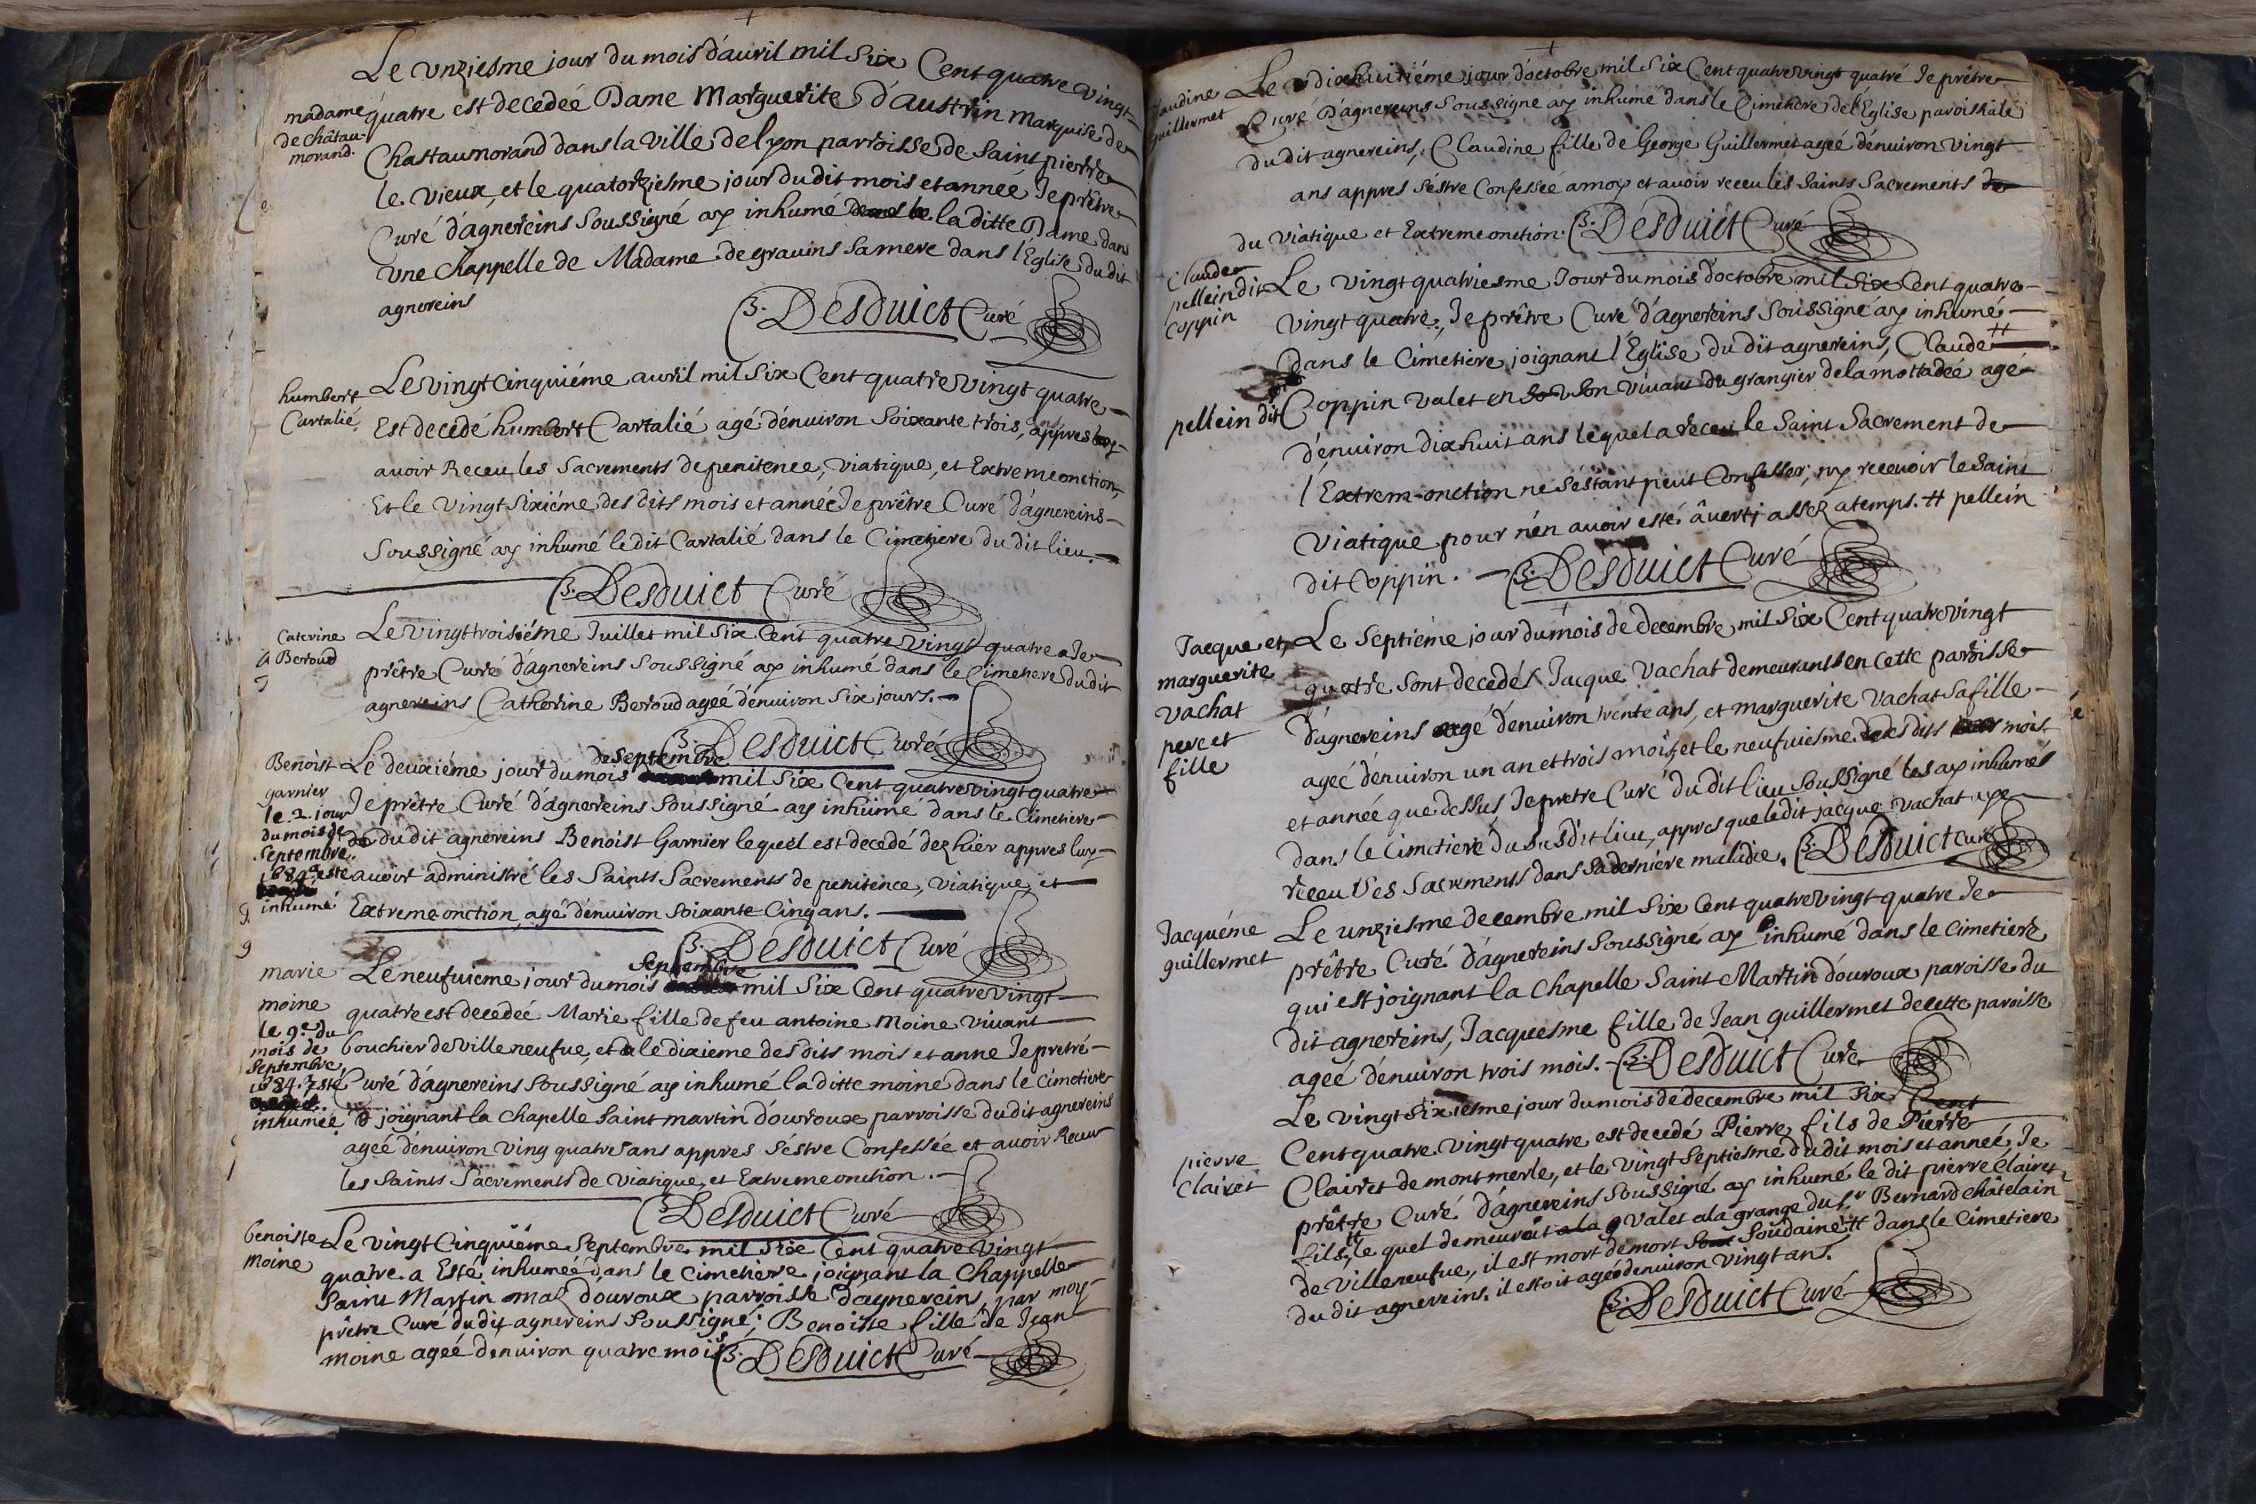 Le unziesme jour du mois d'auril mil Six Cent quatre vingt
madame
de Châtau-
morand.
quatre est decedeé Dame Marguerite D'austrin Marquise de
Chastaumorand dans la ville de lyon parroisse de Saint pierre
le vieux, et le quatorziesme jour du dit mois et anneé Je prêtre
Curé d'agnereins Soussigné ay inhumé la ditte Dame dans
une Chappelle de Madame de grauins Sa mere dans l'Eglise du dit
agnereins
B. Desduict Curé
humbert
Cartalié
Le vingt Cinquiéme auril mil Six Cent quatre vingt quatre
Est decédé humbert Cartalié agé d'enuiron Soixante trois ans, appres
auoir Receu les Sacrements de penitence, viatique, et Extreme onction,
Et le vingt Sixiéme des dits mois et anneé Je prêtre Curé d'agnereins
Soussigné ay inhumé le dit Cartalié dans le Cimetiere du dit lieu.
B. Desduict Curé
Caterine
Beroud
Le vingt troisiéme Juillet mil Six Cent quatre vingt quatre Je
prêtre Curé d'agnereins Soussigné ay inhumé dans le Cimetiere du dit
agnereins Catherine Beroud ageé d'enuiron Six jours.
B. Desduict Curé
Benoist
garnier
le .2. jour
du mois de
Septembre.
1684 a este
inhumé
de Septembre
Le deuxiéme jour du mois mil Six Cent quatre vingt quatre
Je prêtre Curé d'agnereins Soussigné ay inhumé dans le Cimetiere
du dit agnereins Benoist Garnier lequel est decedé dez hier appres luy
auoir administré les Saints Sacrements de penitence, viatique, et
Extreme onction, agé d'enuiron Soixante Cinq ans.
B. Desduict Curé
marie
moine
le 9.e du
mois de
Septembre,
1684. este
inhumeé
Septembre
Le neufuieme jour du mois mil Six Cent quatre vingt
quatre est decedeé Marie fille de feu antoine Moine vivant
bouchier de villeneufue, et le dixieme des dits mois et anne Je pretré
Curé d'agnereins Soussigné ay inhumé la ditte moine dans le Cimetiere
joignant la Chapelle Saint martin d'ouroux parroisse du dit agnereins
ageé d'enuiron ving quatre ans appres s'éstre Confessée et auoir Receu
les Saints Sacrements de Viatique, et Extreme onction.
B. Desduict Curé
benoiste
Moine
Le vingt Cinquiéme Septembre mil Six Cent quatre vingt
quatre a Esté inhumeé dans le Cimetiere joignant la Chappelle
Saint Martin d'ouroux parroisse d'agnereins, par moy
prêtre Curé du dit agnereins Soussigné; Benoiste fille de Jean
moine ageé d'enuiron quatre mois
B. Desduict Curé
Claudine
Guillermet
Le dixhuitiéme jour d'octobre mil Six Cent quatre vingt quatré Je prêtre
Curé D'agnereins Soussigné ay inhumé dans le Cimetiere de l'Eglise paroissiale
du dit agnereins, Claudine fille de George Guillermet ageé d'enuiron vingt
ans appres s'éstre Confesseé a moy et auoir receu les Saints Sacrements de
du Viatique et Extreme onction. B. Desduict Curé
Claude
pellein dit
Coppin
Le vingt quatriesme Jour du mois d'octobre mil Six Cent quatre
vingt quatre, Je prêtre Curé d'agnereins Soussigné ay inhumé
dans le Cimetiere joignant l'Eglise du dit agnereins, Claude #
pellein dit Coppin valet en Son vivant du grangier de la mottadeé agé
d'enuiron dixhuit ans lequel a receu le Saint Sacrement de
l'Extrem-onction ne s'éstant peut Confesser, ny receuoir le Saint
Viatique pour n'en auoir esté âuerti assez a temps. # pellein
dit Coppin. B. Desduict Curé
Jacque et,
marguerite
vachat
pere et
fille
Le Septiéme jour du mois de decembre mil Six Cent quatre vingt
quatre Sont decedés Jacque vachat demeurants en Cette parroisse
d'agnereins agé d'enuiron trente ans, et marguerite vachat Sa fille
ageé d'enuiron un an et trois mois, et le neufuiesme des dits mois
et année que dessus, Je pretre Curé du dit lieu Soussigné les ay inhumés
dans le Cimetiere du Susdit lieu, appres que le dit jacque vachat aye
receu Ses Sacrements dans Sa derniére maladie. B. Desduict Curé
Jacquéme
guillermet
Le unziesme decembre mil Six Cent quatre vingt quatre Je
prêtre Curé d'agnereins Soussigné ay inhumé dans le Cimetiere
qui est joignant la Chapelle Saint Martin d'ouroux paroisse du
dit agnereins, Jacquesme fille de Jean guillermet de cette paroisse
ageé d'enuiron trois mois. B. Desduict Curé
pierre
Clairet
Le vingt Sixiesme jour du mois de decembre mil Six Cent
Cent quatre vingt quatre est decedé Pierre fils de Pierre
Clairet de mont merle, et le vingt Septiesme du dit mois et anneé, Je
prêtre Curé d'agnereins Soussigné ay inhumé le dit pierre Clairet
fils, # le quel demeuroit a la valet a la grange du S.r Bernard châtelain
de villeneufue, il est mort de mort Soudaine # dans le Cimetiere
du dit agnereins. il estoit ageé d'enuiron vingt ans.
B. Desduict Curé